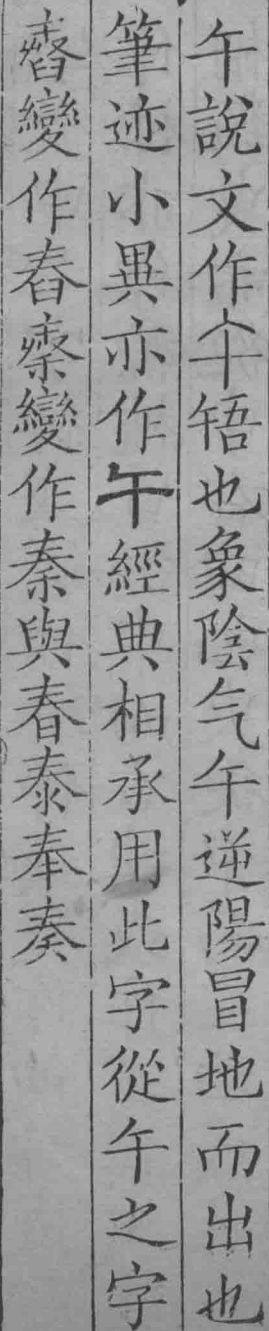 午說文作𠂒啎也象陰气午逆陽冒地而出也
筆迹小異亦作午經典相承用此字從午之字
𦥷變作舂𥠼變作秦與春泰奉奏